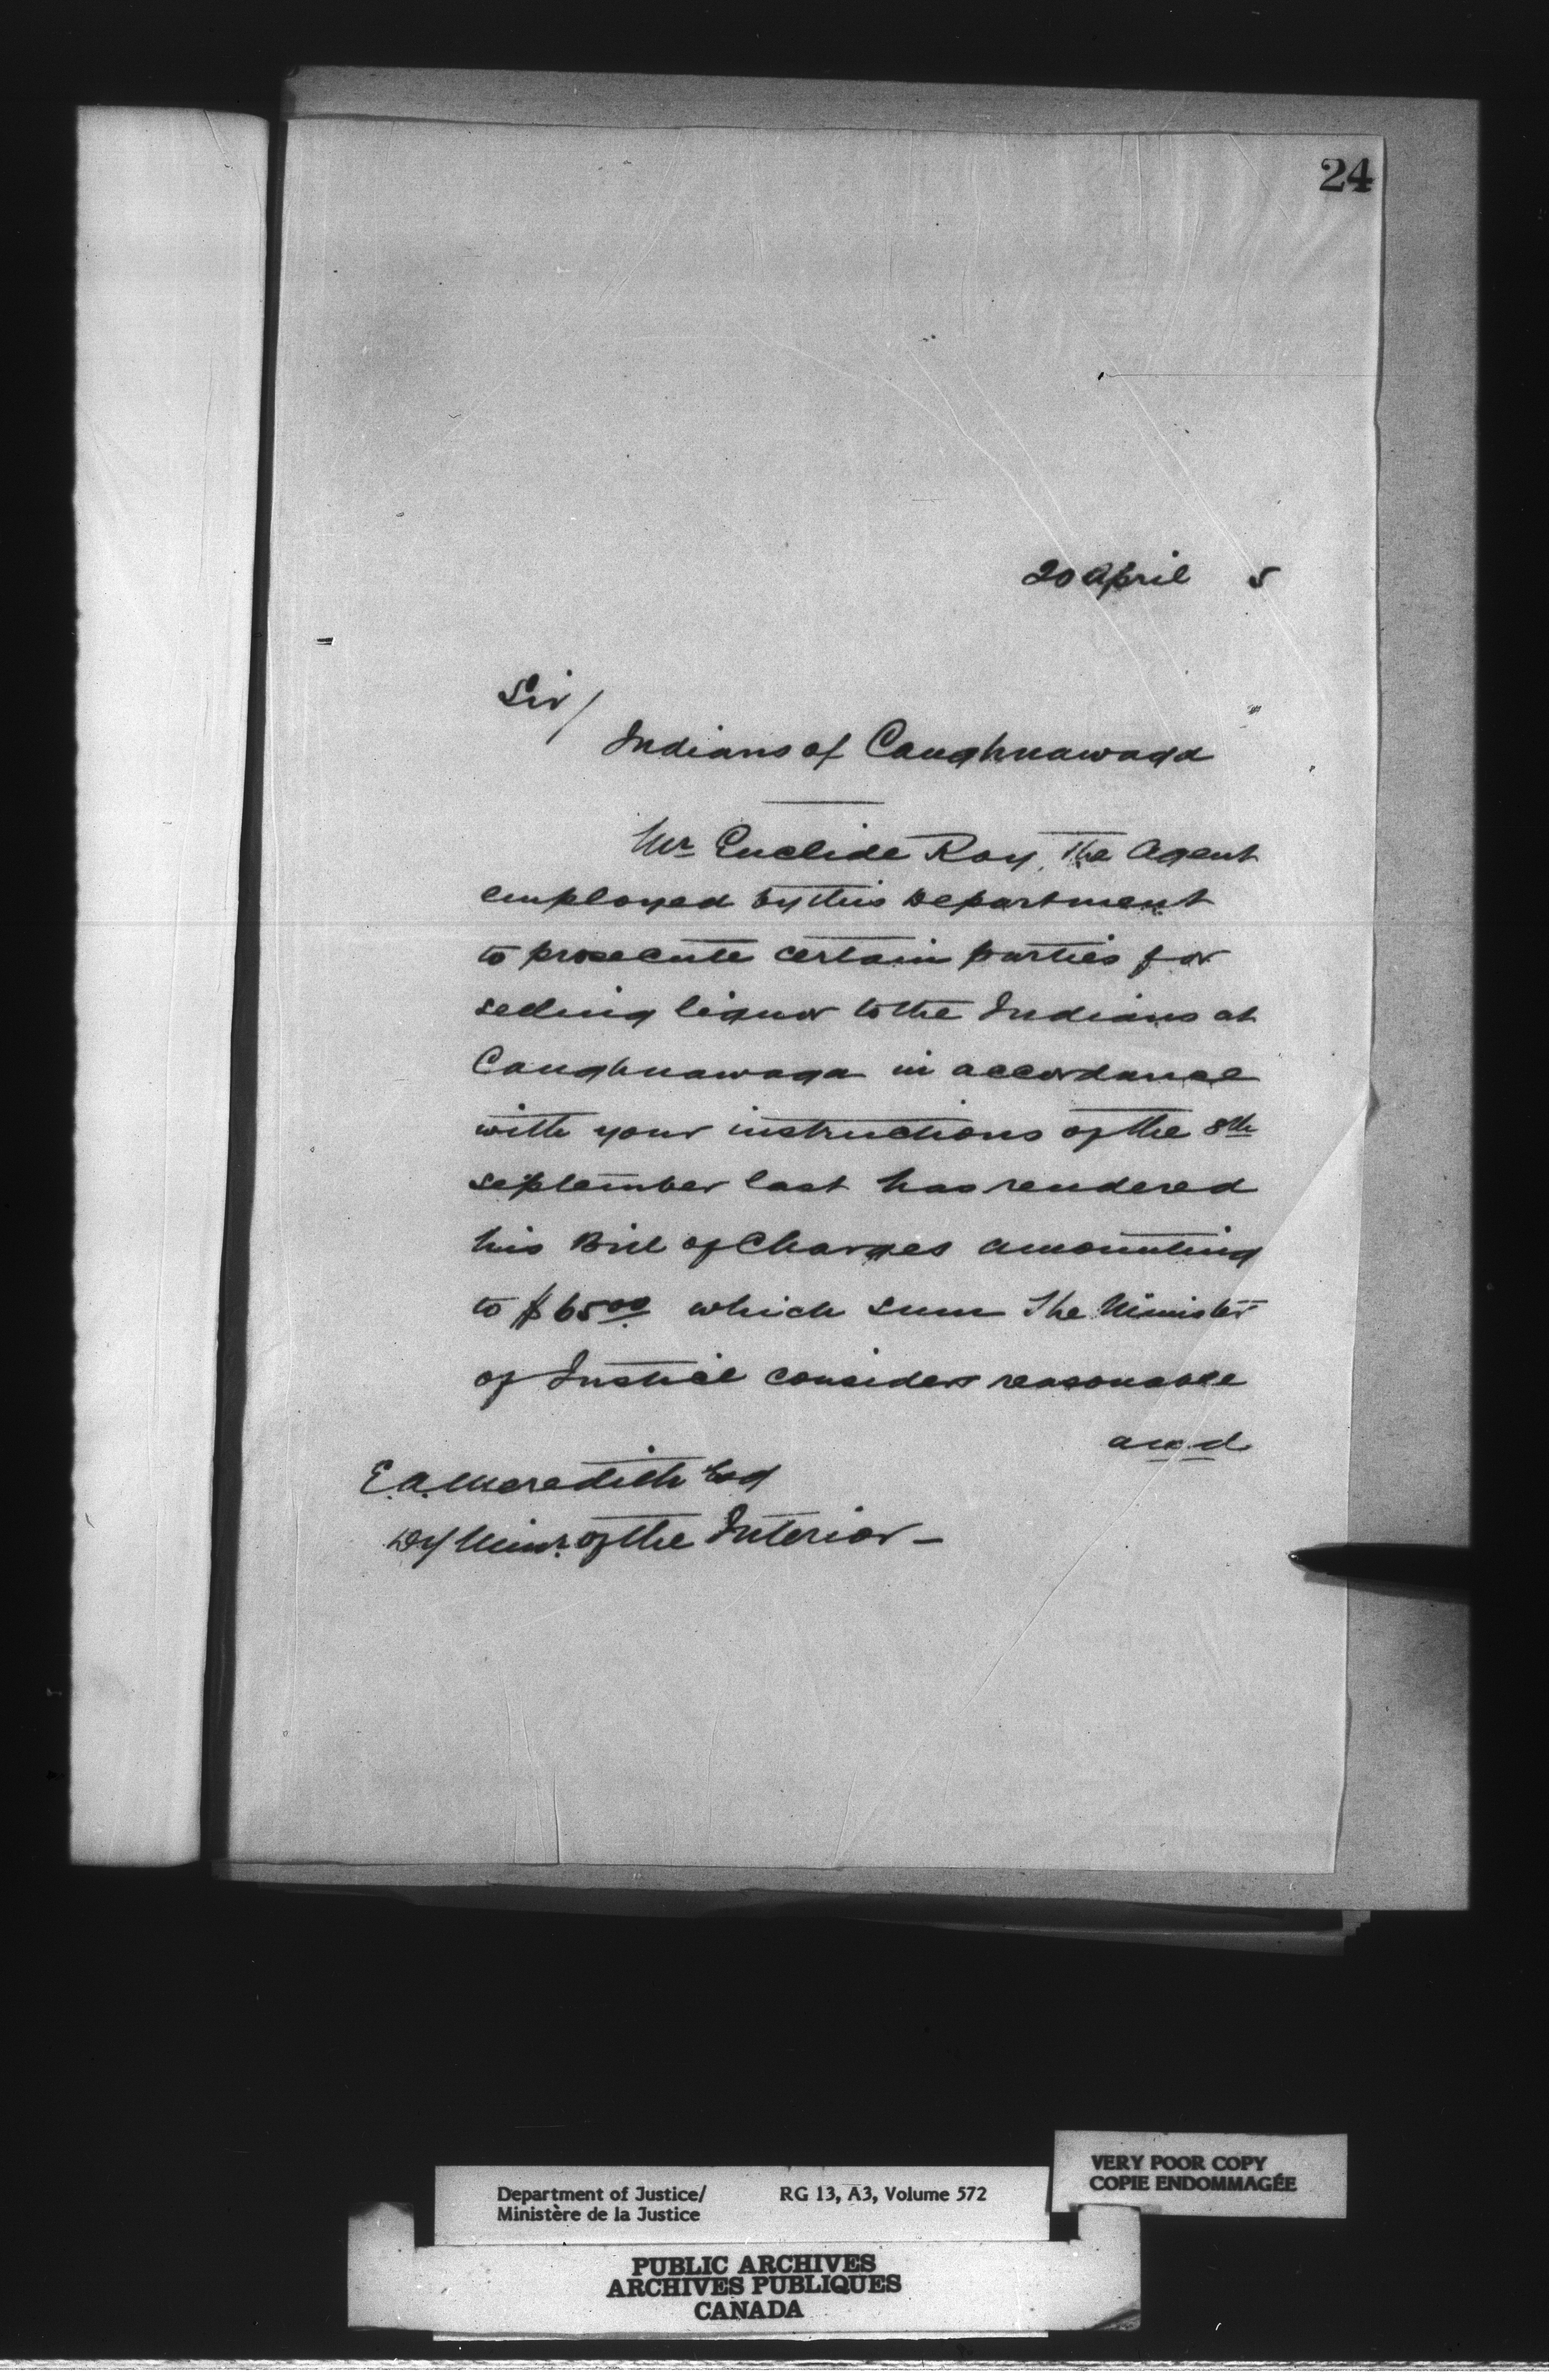 24
20 April 5
Sir/
Indians of Caughnawaga
Mr Euclide Roy, The Agent
employed by this Department
to prosecute certain parties for
selling liquor to the Indians at
Caughnawaga in accordance
with your instructions of the 8th
September last has rendered
his Bill of Charges amounting
to $65.00 which sum The Minister
of Justice considers reasonable
and
E. A. Meredith Esq
Dy Minr. of the Interior –
Department of Justice/ RG 13, A3, Volume 572
Ministère de la Justice
VERY POOR COPY
COPIE ENDOMMAGÉE
PUBLIC ARCHIVES
ARCHIVES PUBLIQUES
CANADA